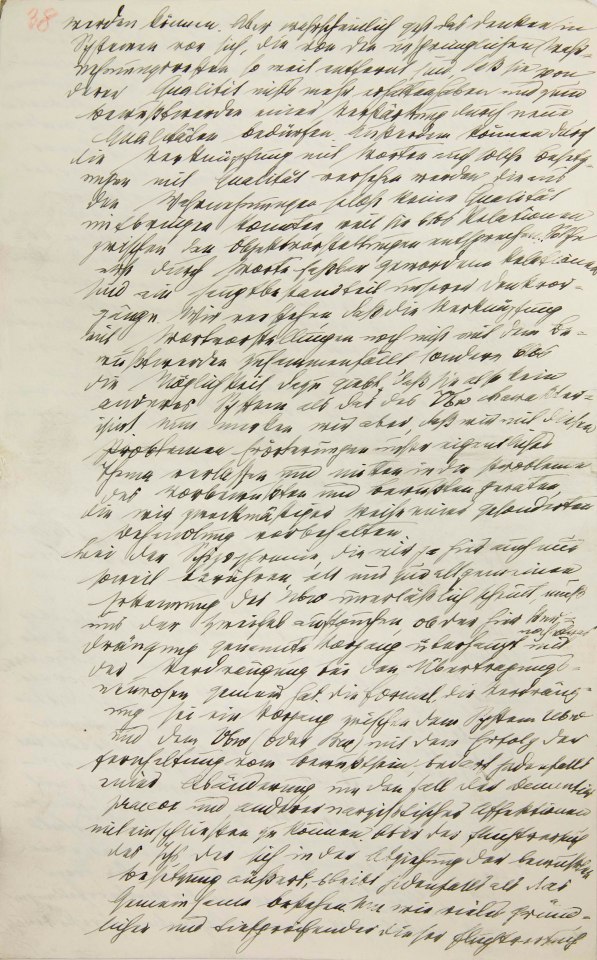 38
werden können. Aber wahrscheinlich geht das Denken in
Systemen vor sich, die von den ursprünglichen Wahr-
nehmungsresten so weit entfernt sind, daß sie von
deren Qualität nichts mehr erhalten haben und zum
Bewußtwerden einer Verstärkung durch neue
Qualitäten bedürfen. Außerdem können durch
die Verknüpfung mit Worten auch solche Besetz-
ungen mit Qualität versehen werden die aus
den Wahrnehmungen selbst keine Qualität
mitbringen konnten weil sie blos Relationen
zwischen den Objektvorstellungen entsprechen. Solche
erst durch Worte faßbar gewordene Relationen
sind ein Hauptbestandteil unserer Denkvor-
gänge. Wir verstehen daß die Verknüpfung
mit Wortvorstellungen noch nicht mit dem Be-
wußtwerden zusammenfällt sondern blos
die Möglichkeit dazu giebt, daß sie also kein
anderes System als das des Vbw charakter-
isirt. Nun merken wir aber, daß wir mit diesen
Problemen Erörterungen unser eigentliches
Thema verlassen und mitten in die Probleme
des Vorbewußten und Bewußten geraten,
die wir zweckmäßiger weise einer gesonderten
Behandlung vorbehalten.
Bei der Schizophrenie, die wir ja hier auch nur
soweit berühren, als uns zur allgemeinen
Erkennung des Ubw unerläßlich scheint, muß
uns der Zweifel auftauchen, ob der hier Ver-
drängung genannte Vorgang überhaupt noch etwas mit
der Verdrängung bei den Übertragungs-
neurosen gemein hat. Die Formel, die Verdräng-
ung sei ein Vorgang zwischen dem System Ubw
und dem Vbw (oder Bw) mit dem Erfolg der
Fernhaltung vom Bewußtsein, bedarf jedenfalls
einer Abänderung um den Fall der Dementia
praecox und anderer narzistischer Affektionen
miteinschließen zu können. Aber der Fluchtversuch
des Ichs, der sich in der Abziehung der bewußten
Besetzung äußert, bleibt jedenfalls als das
Gemeinsame bestehen. Um wie vieles gründ-
licher und tiefgreifender dieser Fluchtversuch